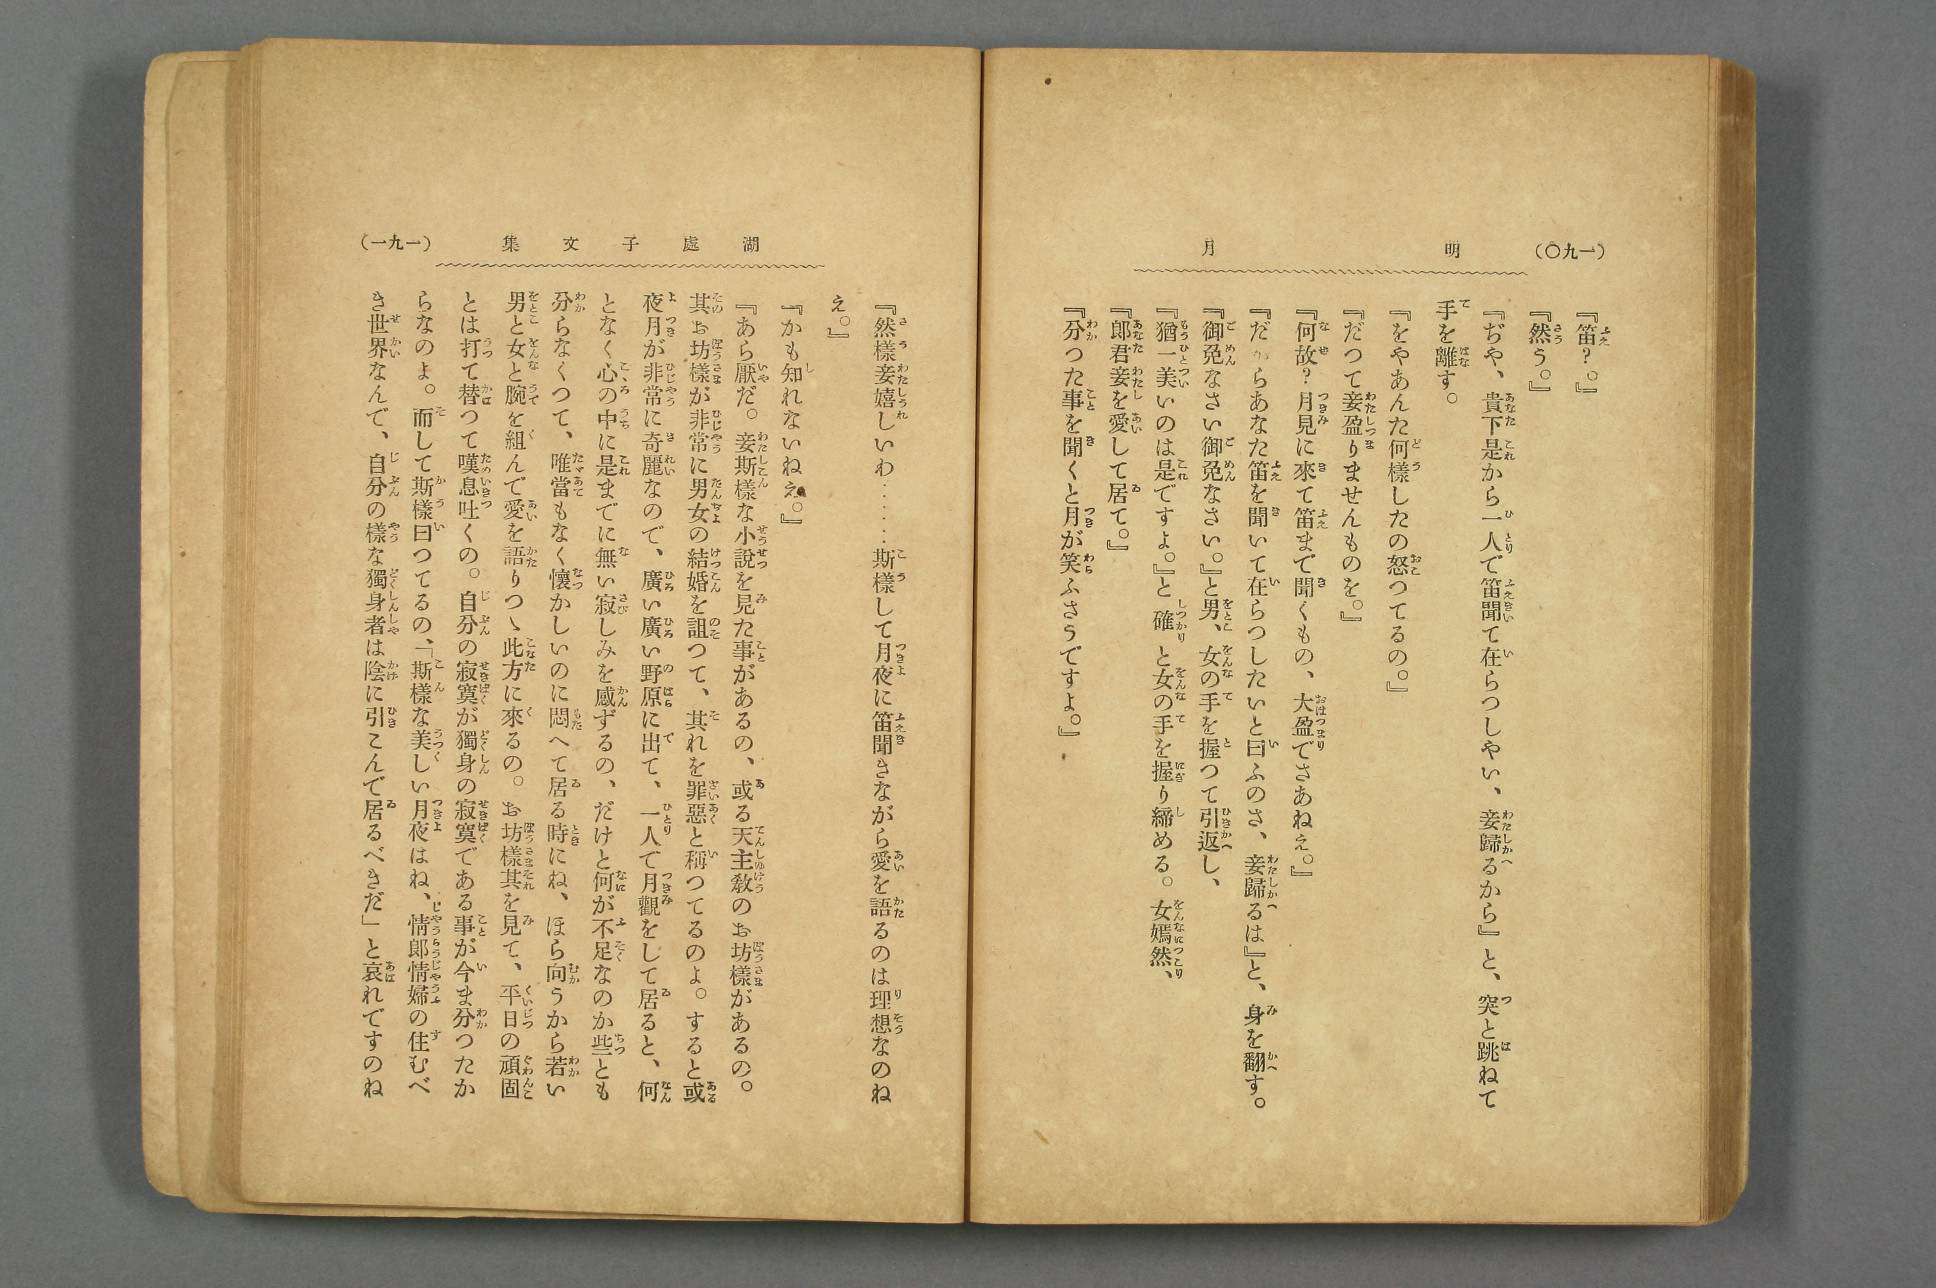 （一九〇）
明月
『笛？。』
『然う。』
『ぢや、貴下是から一人で笛聞て在らつしやい、妾歸るから』と、突と跳ねて
手を離す。
『をやあんた何樣したの怒つてるの。』
『だつて妾盈りませんものを。』
『何故？月見に來て笛まで聞くもの、大盈でさあねえ。』
『だからあなた笛を聞いて在らつしたいと曰ふのさ、妾歸るは』と、身を翻す。
『御免なさい御免なさい。』と男、女の手を握つて引返し、
『猶一美いのは是ですよ。』と確と女の手を握り締める。女嫣然、
『郎君妾を愛して居て。』
『分つた事を聞くと月が笑ふさうですよ。』
湖處子文集
（一九一）
『然樣妾嬉しいわ‥‥‥斯樣して月夜に笛聞きながら愛を語るのは理想なのね
え。』
『かも知れないねえ。』
『あら厭だ。妾斯樣な小說を見た事があるの、或る天主敎のお坊樣があるの。
其お坊樣が非常に男女の結婚を詛つて、其れを罪惡と稱つてるのよ。すると或
夜月が非常に奇麗なので、廣い廣い野原に出て、一人て月觀をして居ると、何
となく心の中に是までに無い寂しみを感ずるの、だけと何が不足なのか些とも
分らなくつて、唯當もなく懷かしいのに悶へて居る時にね、ほら向うから若い
男と女と腕を組んで愛を語りつゝ此方に來るの。お坊樣其を見て、平日の頑固
とは打て替つて嘆息吐くの。自分の寂寞が獨身の寂寞である事が今ま分つたか
らなのよ。而して斯樣曰つてるの、「斯樣な美しい月夜はね、情郞情婦の住むべ
き世界なんで、自分の樣な獨身者は陰に引こんで居るべきだ」と哀れですのね